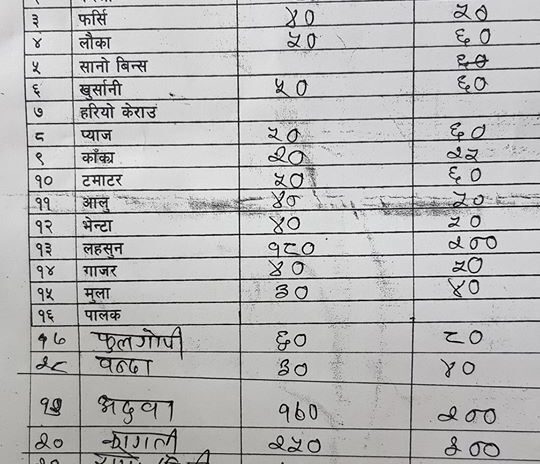 ३ फर्सि ४० ५०
४ लौका ५० ६०
५ सानो बिन्स ६०
६ खुर्सानी ५० ६०
७ हरियो केराउ
८ प्याज ५० ६०
९ काँक्रा २० २५
१० टमाटर ५० ६०
११ आलु ४० ५०
१२ भेन्टा ४० ५०
१३ लहसुन १८० २००
१४ गाजर ४० ५०
१५ मुला ३० ४०
१६ पालक
१७ फुलगोपी ६० ८०
१८ वन्दा ३० ४०
१९ अदुवा १६० २००
२० कागती २५० ३००